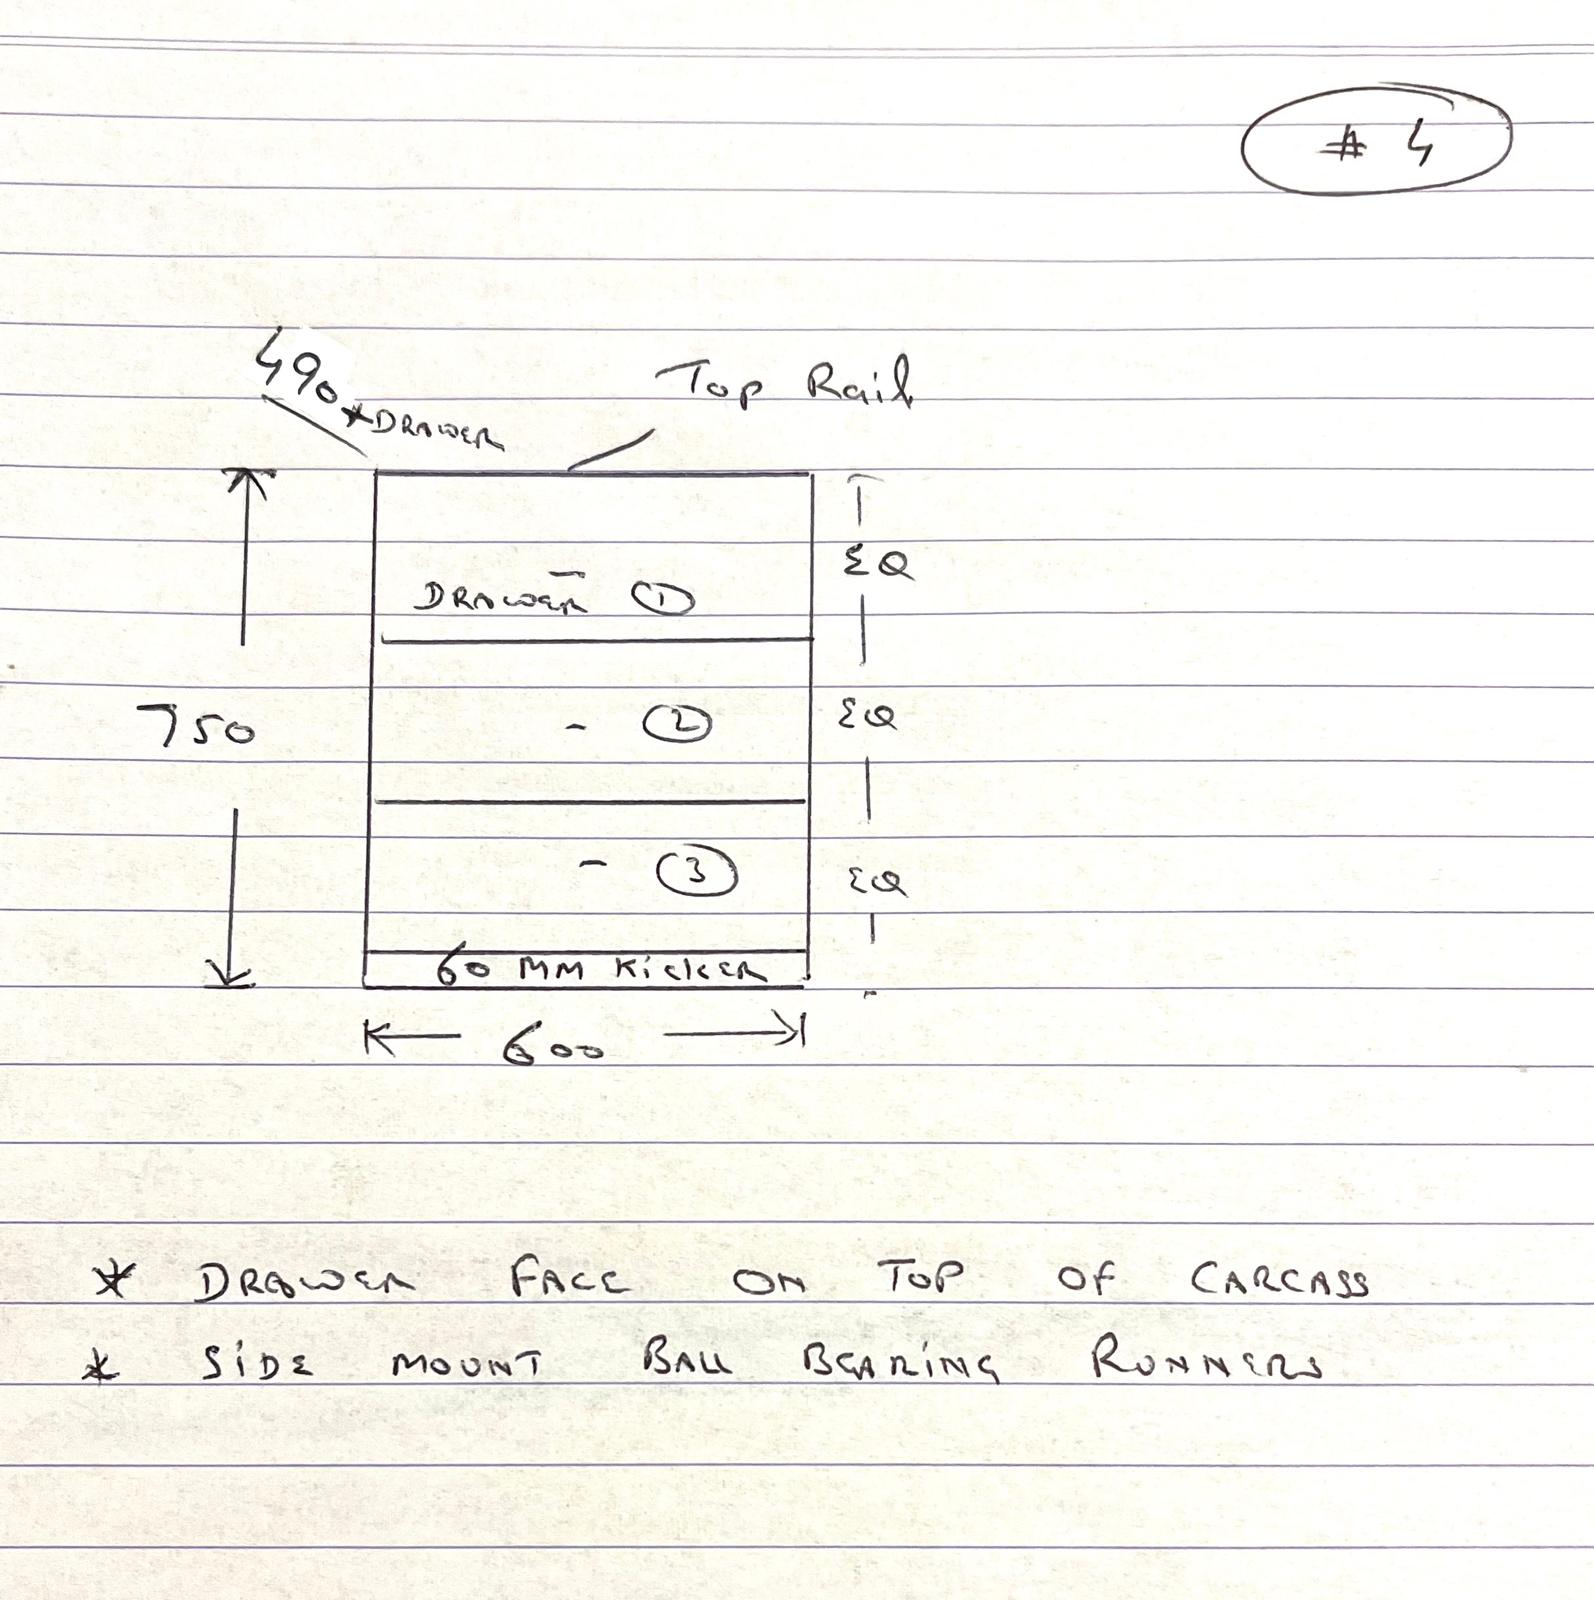 # 4
490 * DRAWER
Top Rail
DRAWER ①
EQ
750
- ②
EQ
- ③
EQ
60 MM KicKER
600
* DRAWER FACE ON TOP OF CARCASS
* SiDE MOUNT BALL BEARING RUNNERS